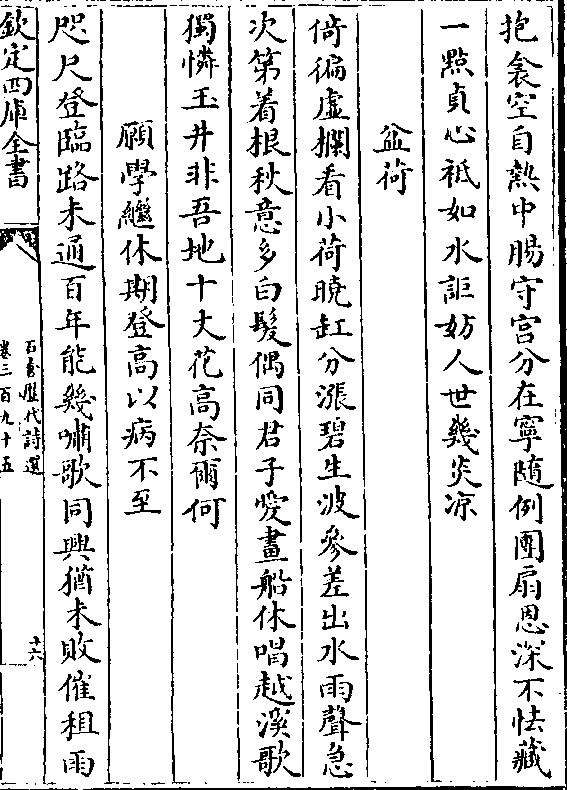 抱衾空自熱中腸守宫分在寧隨例團扇恩深不怯藏
一點貞心祗如水詎妨人世幾炎凉
盆荷
倚徧虛欄看小荷曉缸分漲碧生波參差出水雨聲急
次第着根秋意多白髮偶同君子愛畫船休唱越溪歌
獨憐玉井非吾地十丈花高奈爾何
顧學繼休期登高以病不至
咫尺登臨路未通百年能幾嘯歌同興猶未敗催租雨
欽定四庫全書
石倉歷代詩選
卷三百九十五
十六